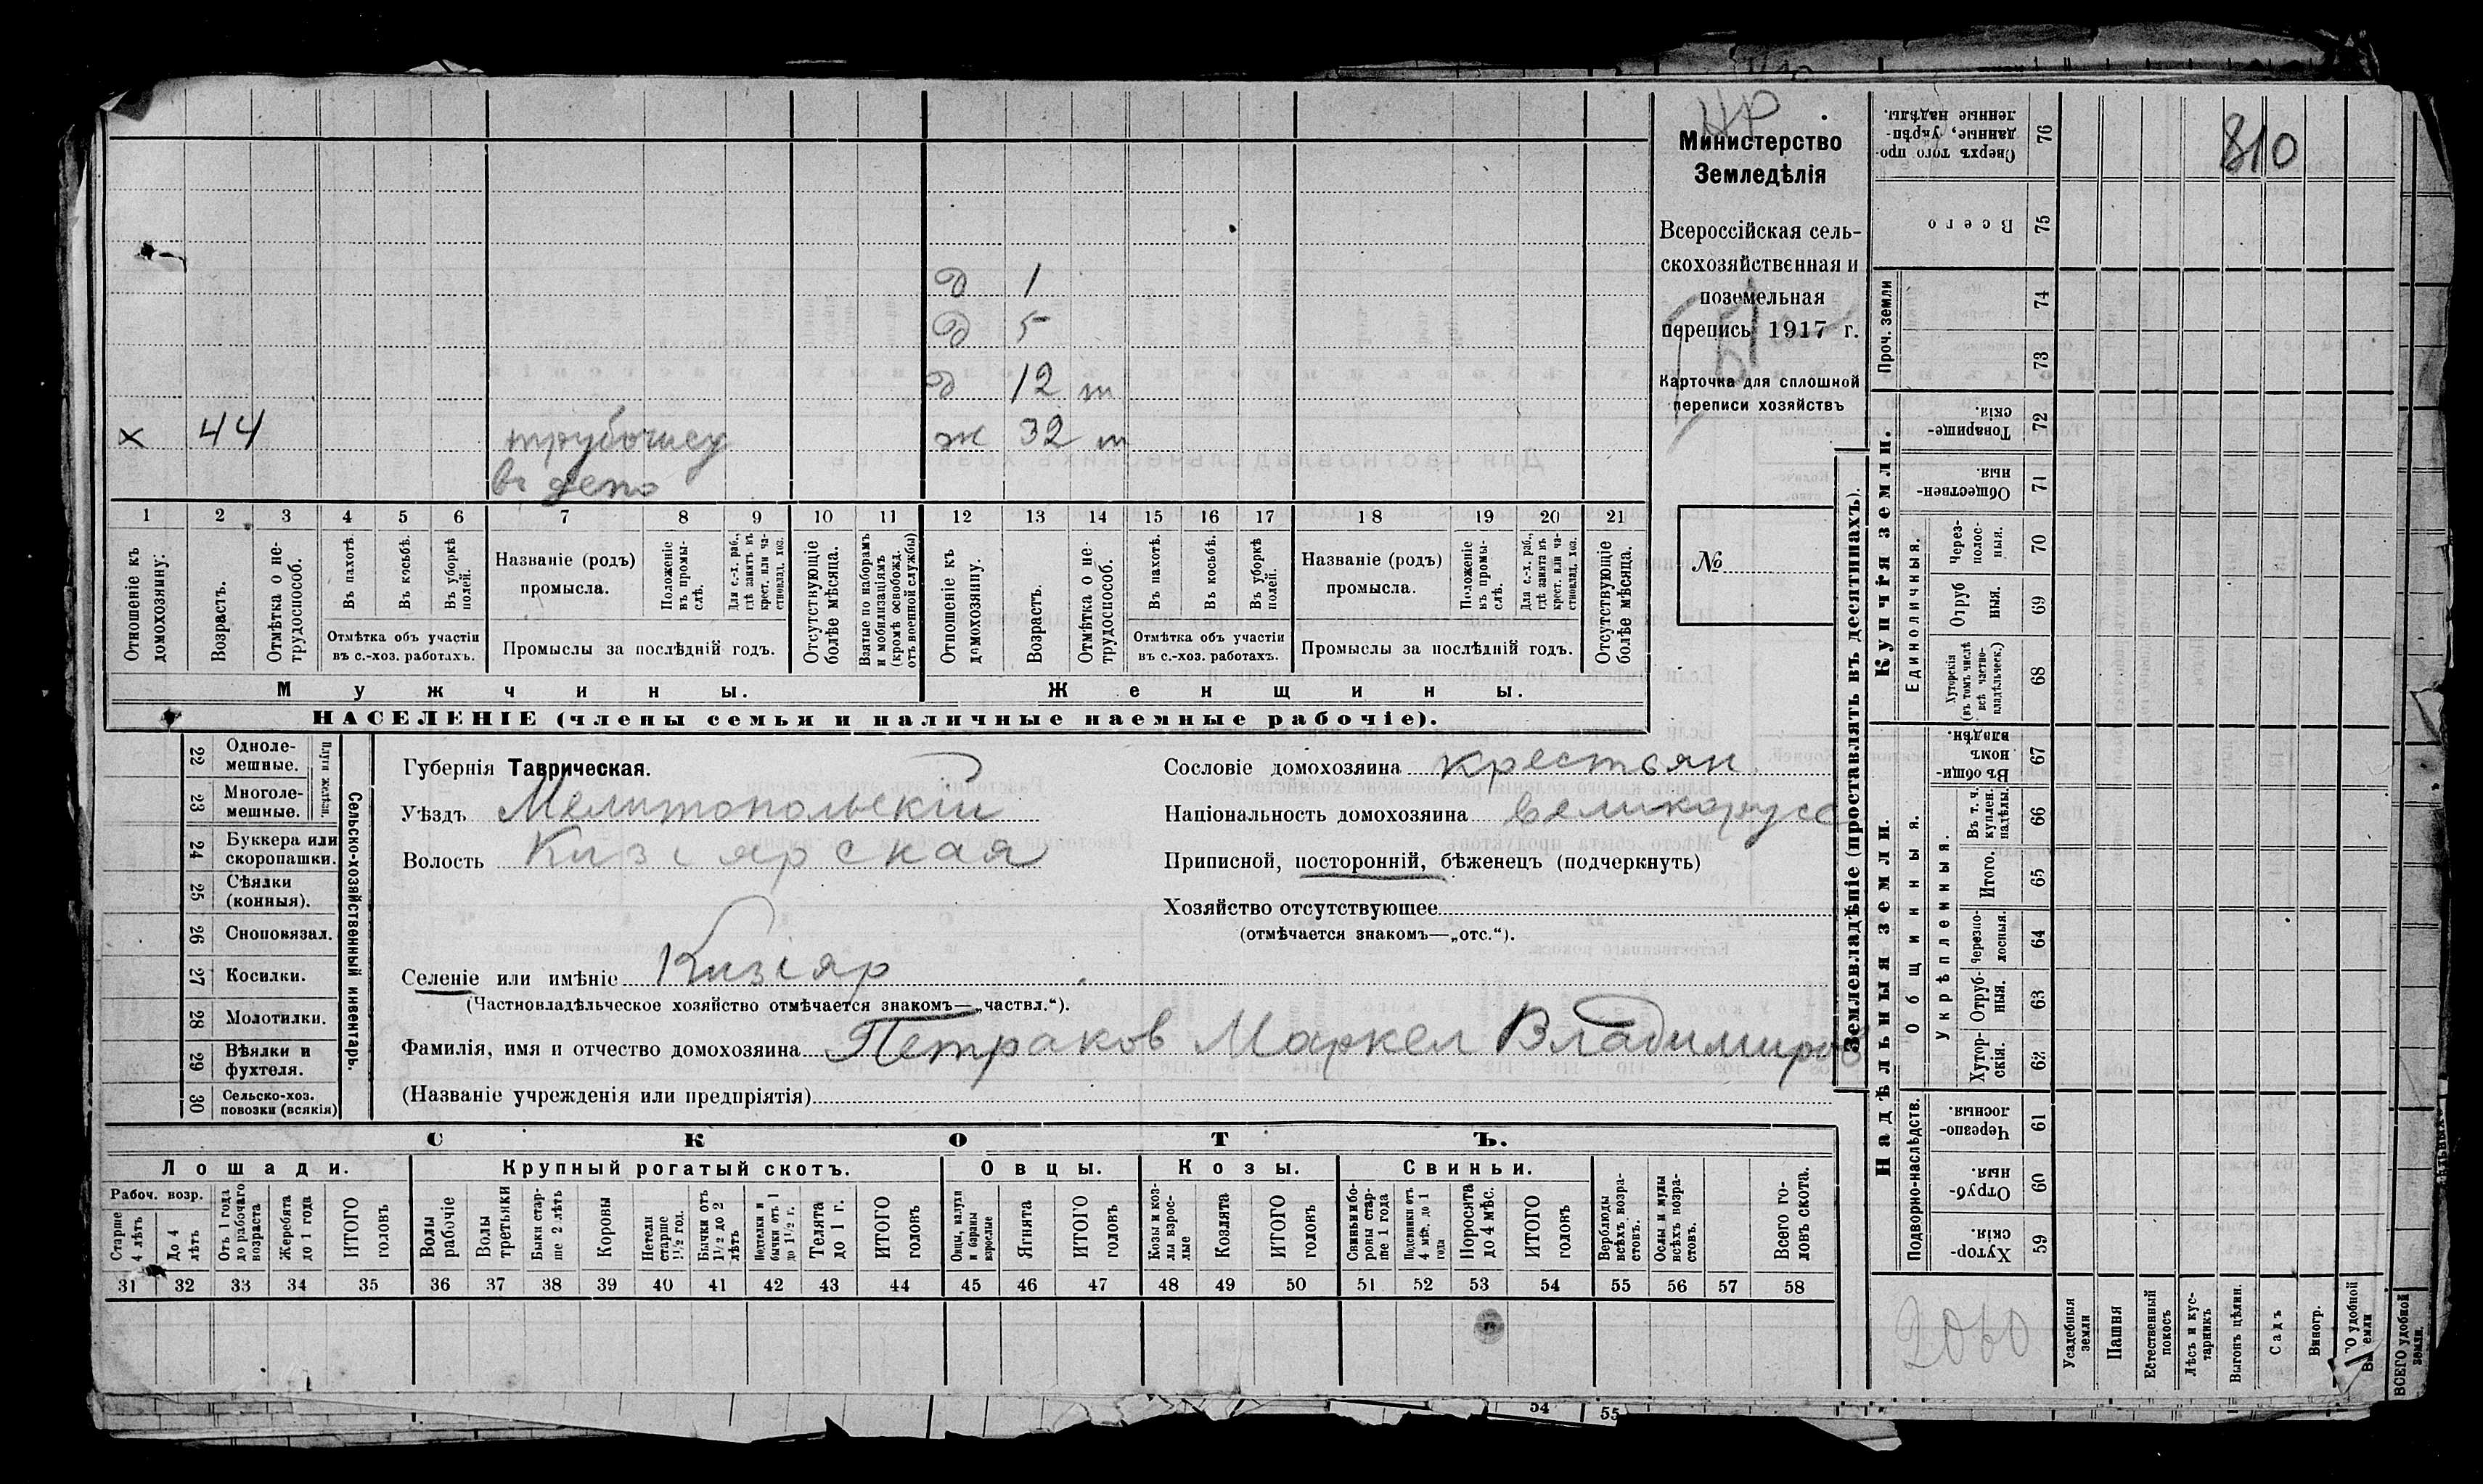 НР
Министерство
Земледѣлія
Всероссійская сель-
скохозяйственная и
поземельная
перепись 1917 г.
Карточка для сплошной
переписи хозяйствъ
№
810
д 1
д 5
д 12 т
х 44 ж 32 т
въ депо
1 2 3 4 5 6 7 8 9 10 11 12 13 14 15 16 17 18 19 20 21
Отношеніе къ домохозяину:
Возрастъ.
Отмѣтка о не-трудоспособ.
Въ пахотѣ.
Въ косьбѣ.
Въ уборкѣ полей.
Отмѣтка объ участіи
въ с.-хоз. работахъ.
Названіе (родъ)
промысла.
Положеніе въ промы-слѣ.
Для с.-х. раб., гдѣ занятъ въ крест. или ча-стновлад. хоз.
Промыслы за послѣдній годъ.
Отсутствующіе болѣе мѣсяца.
Взятые по наборамъ и мобилизаціямъ (кромѣ освобожд. отъ военной службы)
Отношеніе къ домохозяину.
Возрастъ.
Отмѣтка о не-трудоспособ.
Въ пахотѣ.
Въ косьбѣ.
Въ уборкѣ полей.
Отмѣтка объ участіи
въ с.-хоз. работахъ.
Названіе (родъ)
промысла.
Положеніе въ промы-слѣ.
Для с.-х. раб., гдѣ занята въ крест. или ча-стновлад. хоз.
Промыслы за послѣдній годъ.
Отсутствующіе болѣе мѣсяца.
Мужчины. Женщины.
НАСЕЛЕНІЕ (члены семьи и наличные наемные рабочіе).
22 Одноле-мешные.
23 Многоле-мешные.
Плуги желѣзн.
24 Буккера или скоропашки.
25 Сѣялки (конныя).
26 Сноповязал.
27 Косилки.
28 Молотилки.
29 Вѣялки и фухтеля.
30 Сельско-хоз. повозки (всякія)
Сельско-хозяйственный инвентарь.
Губернія Таврическая.
Уѣздъ Мелитопольскій
Волость Кизіярская
Селеніе или имѣніе Кизіяр
(Частновладѣльческое хозяйство отмѣчается знакомъ—„частвл.“).
Фамилія, имя и отчество домохозяина Петраков Маркел Владимиров
(Названіе учрежденія или предпріятія)
Сословіе домохозяина крестьян.
Національность домохозяина великорусс
Приписной, посторонній, бѣженецъ (подчеркнуть)
Хозяйство отсутствующее
(отмѣчается знакомъ—„отс.“).
СКОТЪ.
Лошади. Крупный рогатый скотъ. Овцы. Козы. Свиньи.
Рабоч. возр.
Старше 4 лѣтъ
До 4 лѣтъ
Отъ 1 года до рабочаго возраста
Жеребята до 1 года
ИТОГО головъ
Волы рабочіе
Волы третьяки
Быки стар-ше 2 лѣтъ
Коровы
Нетели старше 1½ год.
Бычки отъ 1½ до 2 лѣтъ
Подтелки и бычки отъ 1 до 1½ г.
Телята до 1 г.
ИТОГО головъ
Овцы, валухи и бараны взрослые
Ягнята
ИТОГО головъ
Козы и коз-лы взрос-лые
Козлята
ИТОГО головъ
Свиньи и бо-ровы стар-ше 1 года
Подсвинки отъ 4 мѣс. до 1 года
Поросята до 4 мѣс.
ИТОГО головъ
Верблюды всѣхъ возра-стовъ.
Ослы и мулы всѣхъ возра-стовъ.
Всего го-ловъ скота.
31 32 33 34 35 36 37 38 39 40 41 42 43 44 45 46 47 48 49 50 51 52 53 54 55 56 57 58
Землевладѣніе (проставлять въ десятинахъ).
Сверхъ того про-данные, укрѣп-ленные надѣлы. 76
Всего 75
Проч. земли 74 73
Купчія земли.
Товарище-скія. 72
Обществен-ныя. 71
Единоличныя.
Через-полос-ныя. 70
Отруб ныя. 69
Хуторскія (въ томъ числѣ всѣ частно-владѣльческ.) 68
Надѣльныя земли.
Общинныя.
Въ общин-номъ владѣн. 67
Укрѣпленныя.
Въ т. ч. куплен. надѣлы. 66
Итого. 65
Черезпо-лосныя. 64
Отруб-ныя. 63
Хутор-скія. 62
Подворно-наслѣдств.
Черезпо-лосныя. 61
Отруб-ныя. 60
Хутор-скія. 59
Усадебныя земли
Пашня
Естественный покосъ
Лѣсъ и кус-тарникъ
Выгонъ цѣлин.
Садъ
Виногр.
ВСЕГО удобной земли.
54 55